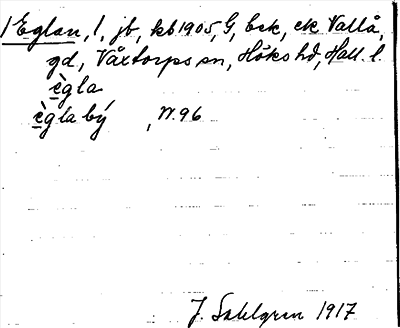 1 Eglan, l, jb, kb 1905, G, bek, ek Vallå,
gd, Våxtorps sn, Höks hd, Hall. l.
ègla
ègla bý , N. 96
J. Sahlgren 1917